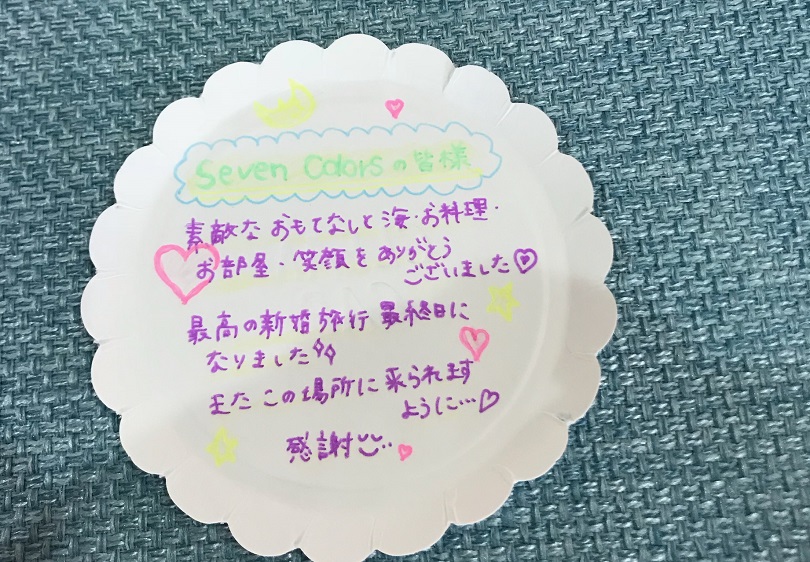 Seven Colorsの皆様
素敵な おもてなしと 海・お料理・
お部屋・笑顔を ありがとう
ございました♡
最高の新婚旅行 最終日に
なりました
また この場所に 来られます
ように…♡
感謝